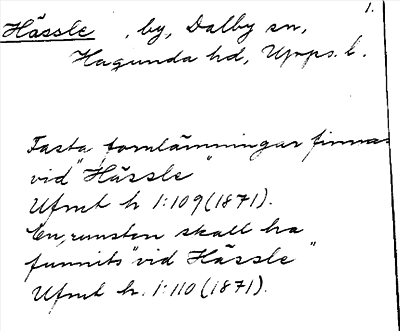 1.
Hässle, by, Dalby sn,
Hagunda hd, Upps. l.
Fasta fornlämningar finnas
vid "Hässle"
Ufmt h 1:109 (1871).
En runsten skall ha
funnits "vid Hässle"
Ufmt h. 1:110 (1871).